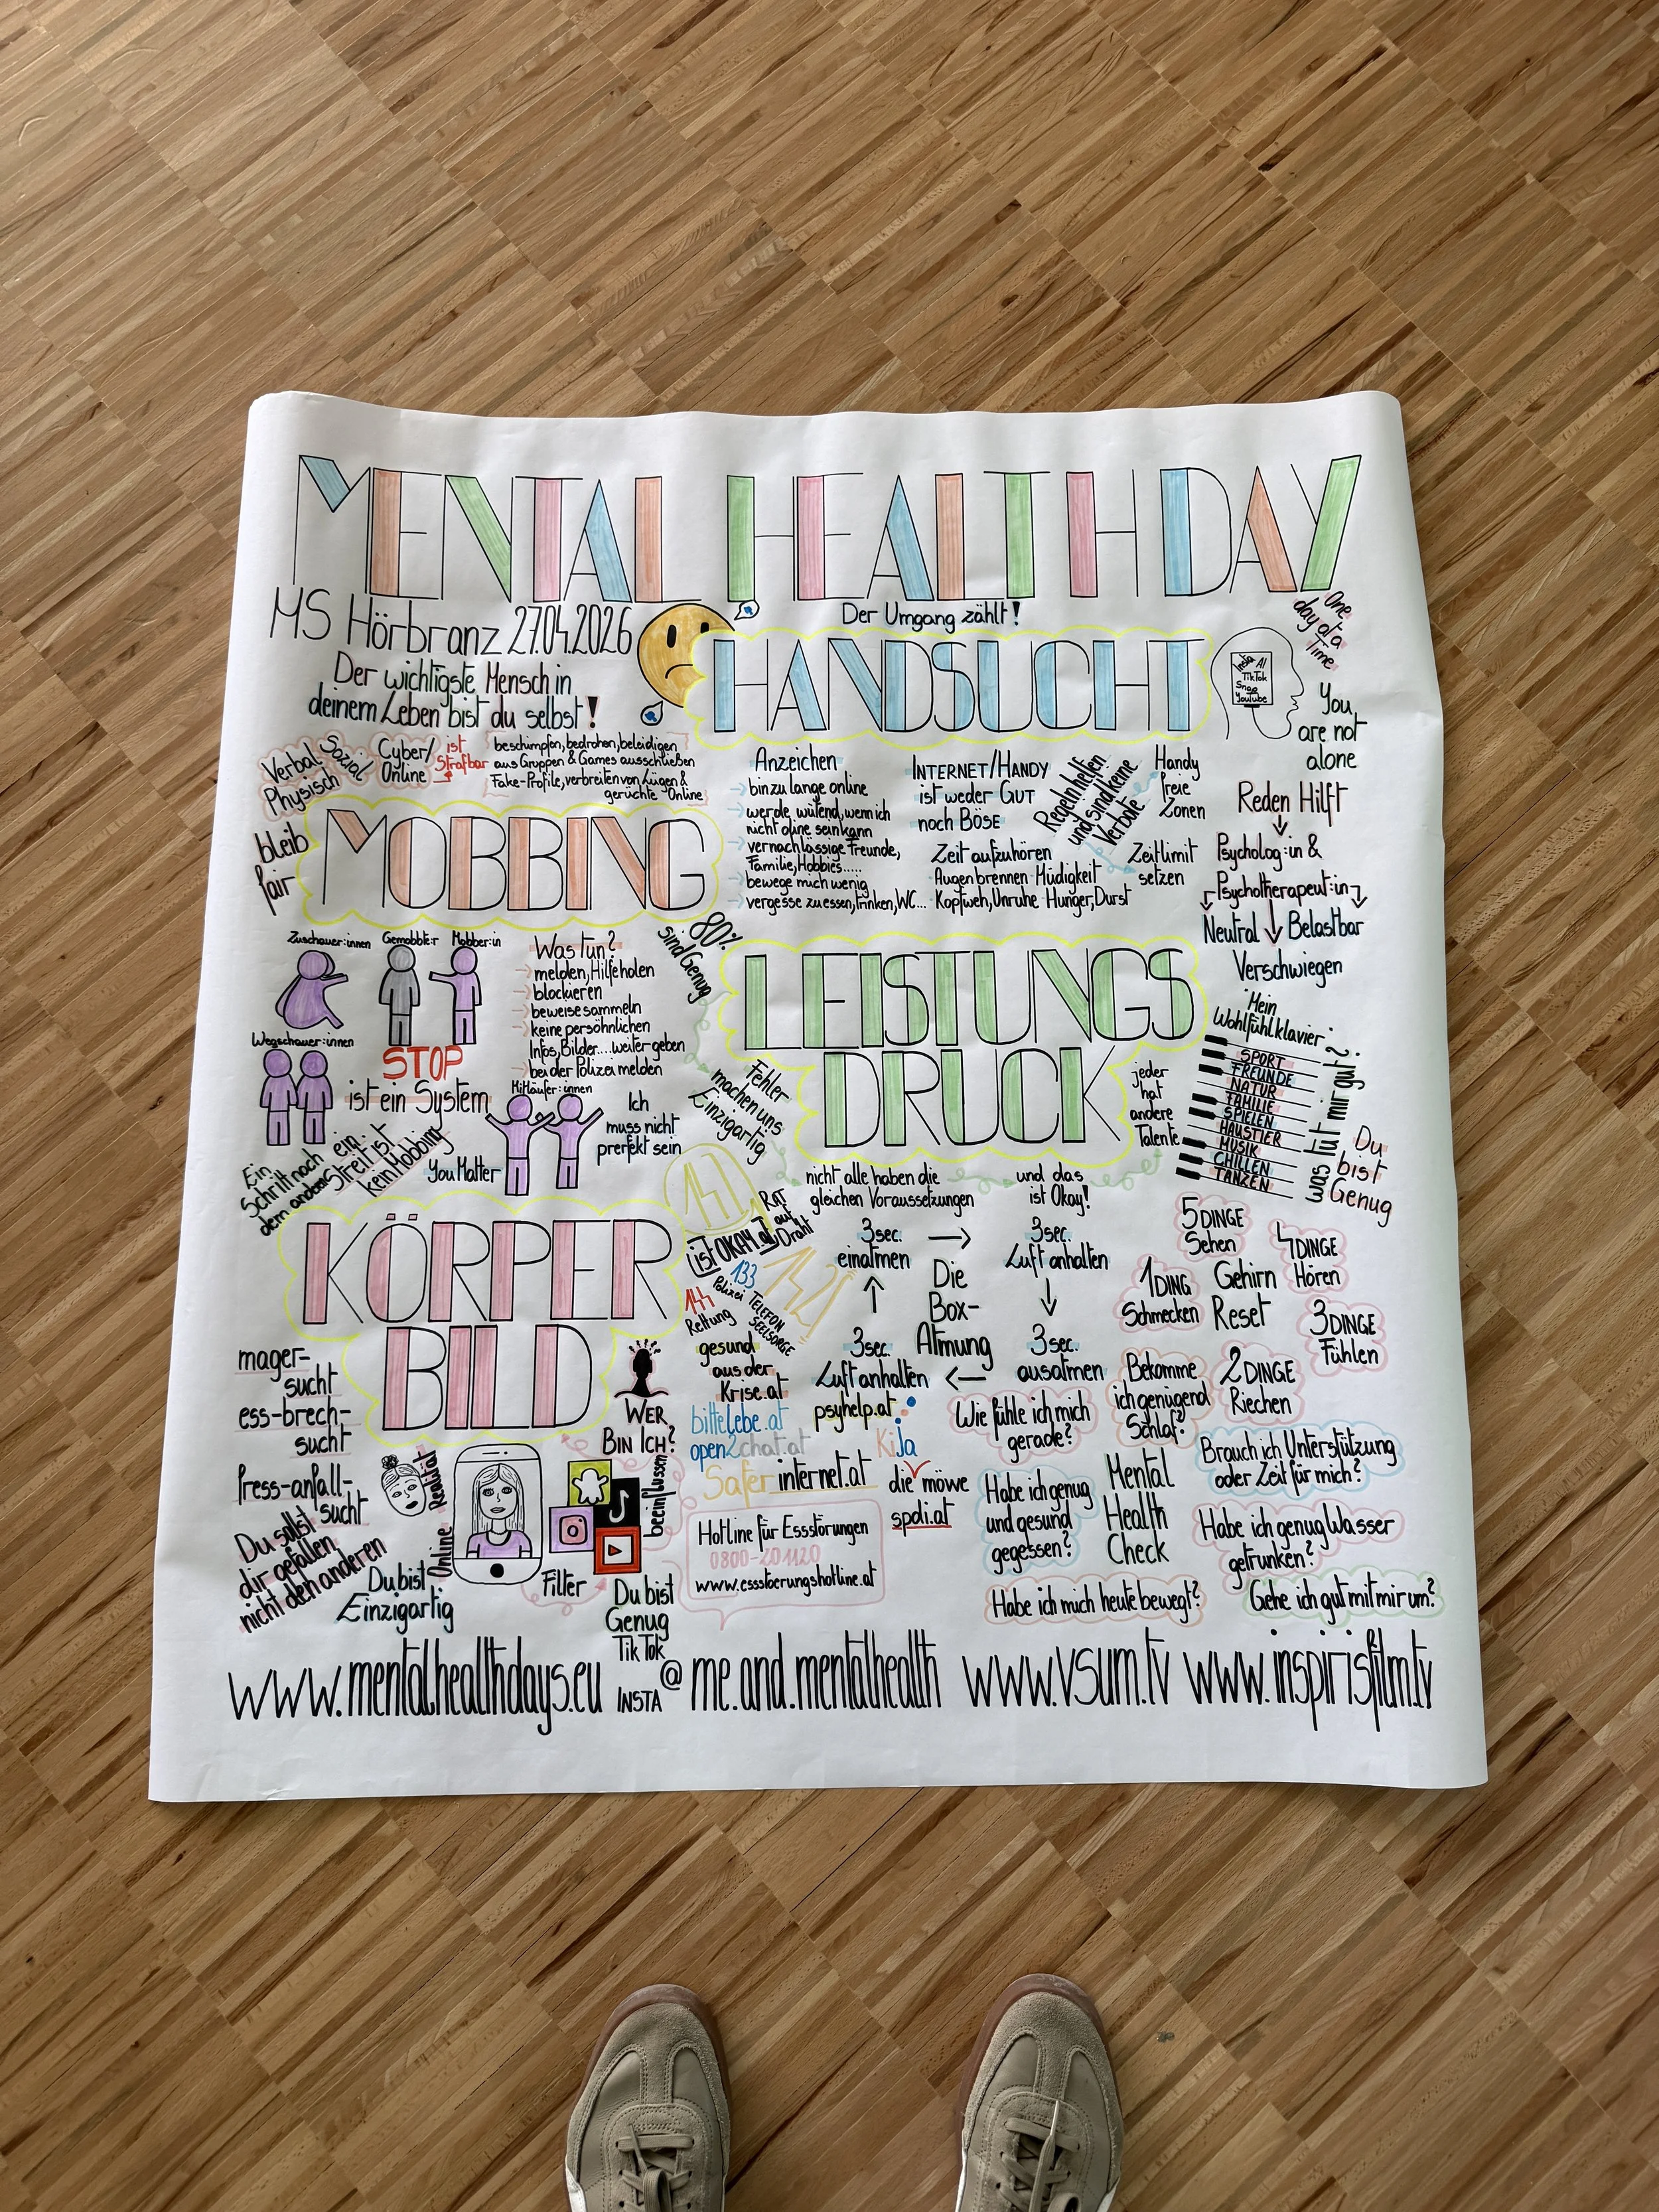 MENTAL HEALTH DAY
MS Hörbranz 27.04.2026
Der wichtigste Mensch in
deinem Leben bist du selbst!
Der Umgang zählt!
HANDSUCHT
Insta AI
TikTok
Snap
YouTube
One
day at a
Time
You
are not
alone
Verbal
Physisch
Sozial
Cyber/
Online
ist
Strafbar
beschimpfen, bedrohen, beleidigen
aus Gruppen & Games ausschließen
Fake-Profile, verbreiten von Lügen &
gerüchte Online
bleib
fair
MOBBING
Zuschauer:innen
Gemobbte:r
Mobber:in
Wegschauer:innen
STOP
ist ein System
Mitläufer:innen
Was tun?
melden, Hilfe holen
blockieren
beweise sammeln
keine persöhnlichen
Infos, Bilder.... weiter geben
bei der Polizei melden
Ein
Schritt nach
dem anderen
ein
Streit ist
kein Mobbing
You Matter
Ich
muss nicht
prerfekt sein
Anzeichen
bin zu lange online
werde wütend, wenn ich
nicht online sein kann
vernachlässige Freunde,
Familie, Hobbies.....
bewege mich wenig
vergesse zu essen, trinken, WC...
INTERNET/HANDY
ist weder GUT
noch BÖSE
Regeln helfen
und sind keine
Verbote
Handy
freie
Zonen
Zeitlimit
setzen
Zeit aufzuhören
Augenbrennen Müdigkeit
Kopfweh, Unruhe Hunger, Durst
Reden Hilft
Psycholog:in &
Psychotherapeut:in
Neutral
Belastbar
Verschwiegen
80%
sind Genug
LEISTUNGS
DRUCK
Fehler
machen uns
Einzigartig
jeder
hat
andere
Talente
nicht alle haben die
gleichen Voraussetzungen
und das
ist Okay!
Mein
Wohlfühlklavier
SPORT
FREUNDE
NATUR
FAMILIE
SPIELEN
HAUSTIER
MUSIK
CHILLEN
TANZEN
was tut mir gut?
Du
bist
Genug
KÖRPER
BILD
mager-
sucht
ess-brech-
sucht
fress-anfall-
sucht
Du sollst
dir gefallen,
nicht den anderen
Du bist
Einzigartig
Realität
Online
Filter
beeinflussen
WER
BIN ICH?
Du bist
Genug
147
Rat
auf
Draht
ist OKAY.at
133
Polizei
144
Rettung
142
TELEFON
SEELSORGE
gesund
aus der
Krise.at
bittelebe.at
open2chat.at
Saferinternet.at
psyhelp.at
KiJa
die möwe
spdi.at
Hotline für Essstörungen
0800-201120
www.essstoerungshotline.at
3sec.
einatmen
3sec.
Luft anhalten
Die
Box-
Atmung
3sec.
Luft anhalten
3sec.
ausatmen
5 DINGE
Sehen
4 DINGE
Hören
3 DINGE
Fühlen
2 DINGE
Riechen
1 DING
Schmecken
Gehirn
Reset
Wie fühle ich mich
gerade?
Bekomme
ich genügend
Schlaf?
Brauch ich Unterstützung
oder Zeit für mich?
Habe ich genug
und gesund
gegessen?
Mental
Health
Check
Habe ich genug Wasser
getrunken?
Habe ich mich heute bewegt?
Gehe ich gut mit mir um?
www.mentalhealthdays.eu
TikTok
INSTA
@ me.and.mentalhealth
www.vsum.tv
www.inspirisfilm.tv